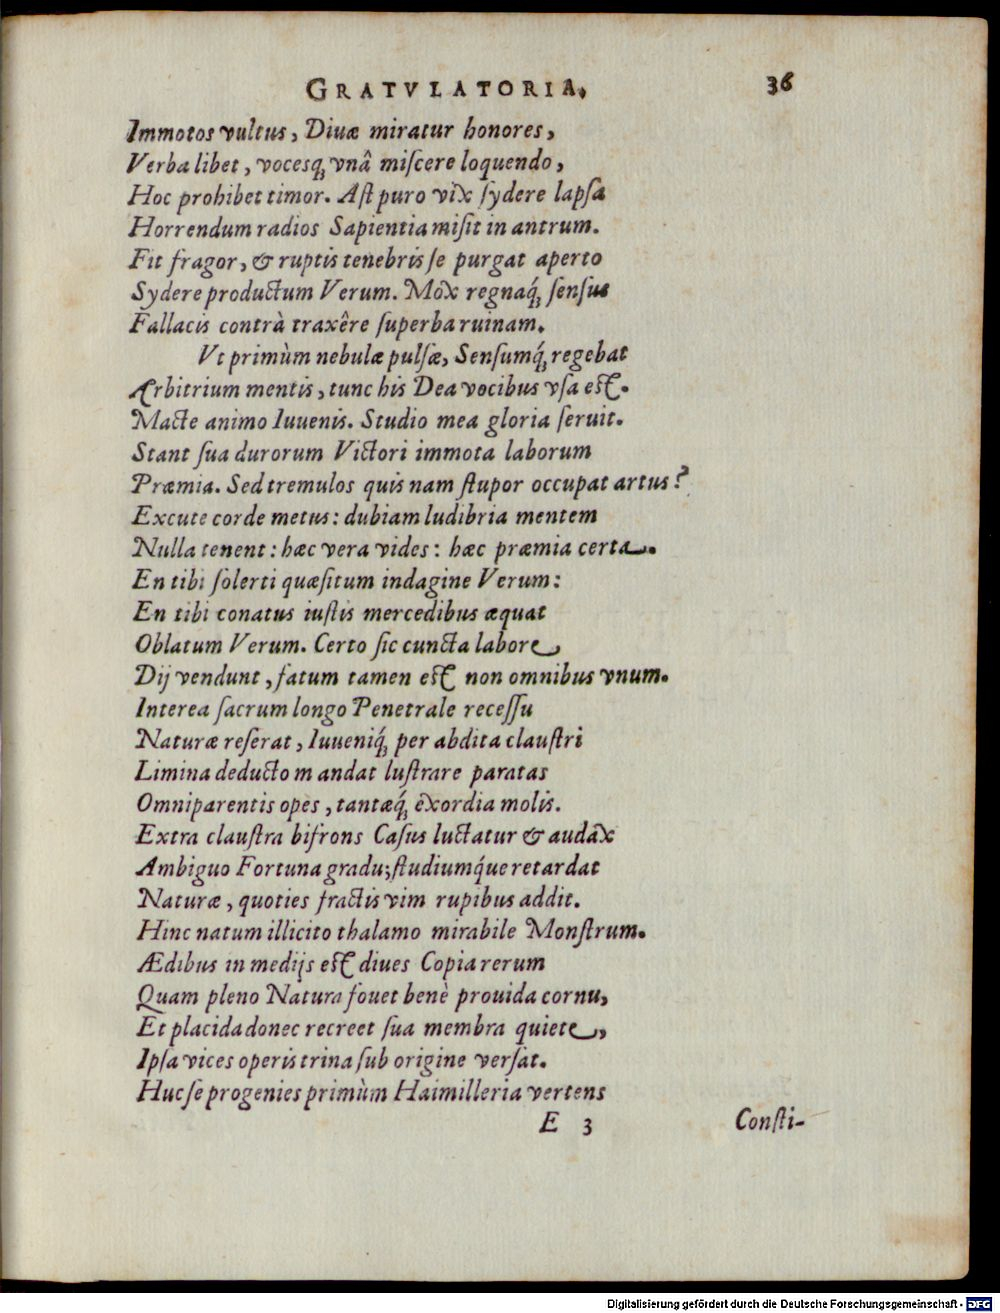 GRATVLATORIA. 36
Immotos vultus, Divæ miratur honores,
Verba libet, vocesq́ꝫ vnâ miſcere loquendo,
Hoc prohibet timor. Aſt puro vix ſydere lapſa
Horrendum radios Sapientia miſit in antrum.
Fit fragor, & ruptis tenebris ſe purgat aperto
Sydere productum Verum. Mox regnaq́ꝫ ſenſus
Fallacis contrà traxêre ſuperba ruinam.
Vt primùm nebulæ pulſæ, Senſumq́ꝫ regebat
Arbitrium mentis, tunc his Dea vocibus vſa eſt.
Macte animo Iuuenis. Studio mea gloria ſeruit.
Stant ſua durorum Victori immota laborum
Præmia. Sed tremulos quis nam ſtupor occupat artus?
Excute corde metus: dubiam ludibria mentem
Nulla tenent: hæc vera vides: hæc præmia certa.
En tibi ſolerti quæſitum indagine Verum:
En tibi conatus iuſtis mercedibus æquat
Oblatum Verum. Certo ſic cuncta labore
Dij vendunt, fatum tamen eſt non omnibus vnum.
Interea ſacrum longo Penetrale receſſu
Naturæ reſerat, Iuueniq́ꝫ per abdita clauſtri
Limina deducto mandat luſtrare paratas
Omniparentis opes, tantæq́ꝫ exordia molis.
Extra clauſtra bifrons Caſus luctatur & audax
Ambiguo Fortuna gradu; ſtudiumq́ue retardat
Naturæ, quoties fractis vim rupibus addit.
Hinc natum illicito thalamo mirabile Monſtrum.
Ædibus in medijs eſt diues Copia rerum
Quam pleno Natura fouet benè prouida cornu,
Et placida donec recreet ſua membra quiete,
Ipſa vices operis trina ſub origine verſat.
Huc ſe progenies primùm Haimilleria vertens
E 3 Conſti-
Digitalisierung gefördert durch die Deutsche Forschungsgemeinschaft - DFG